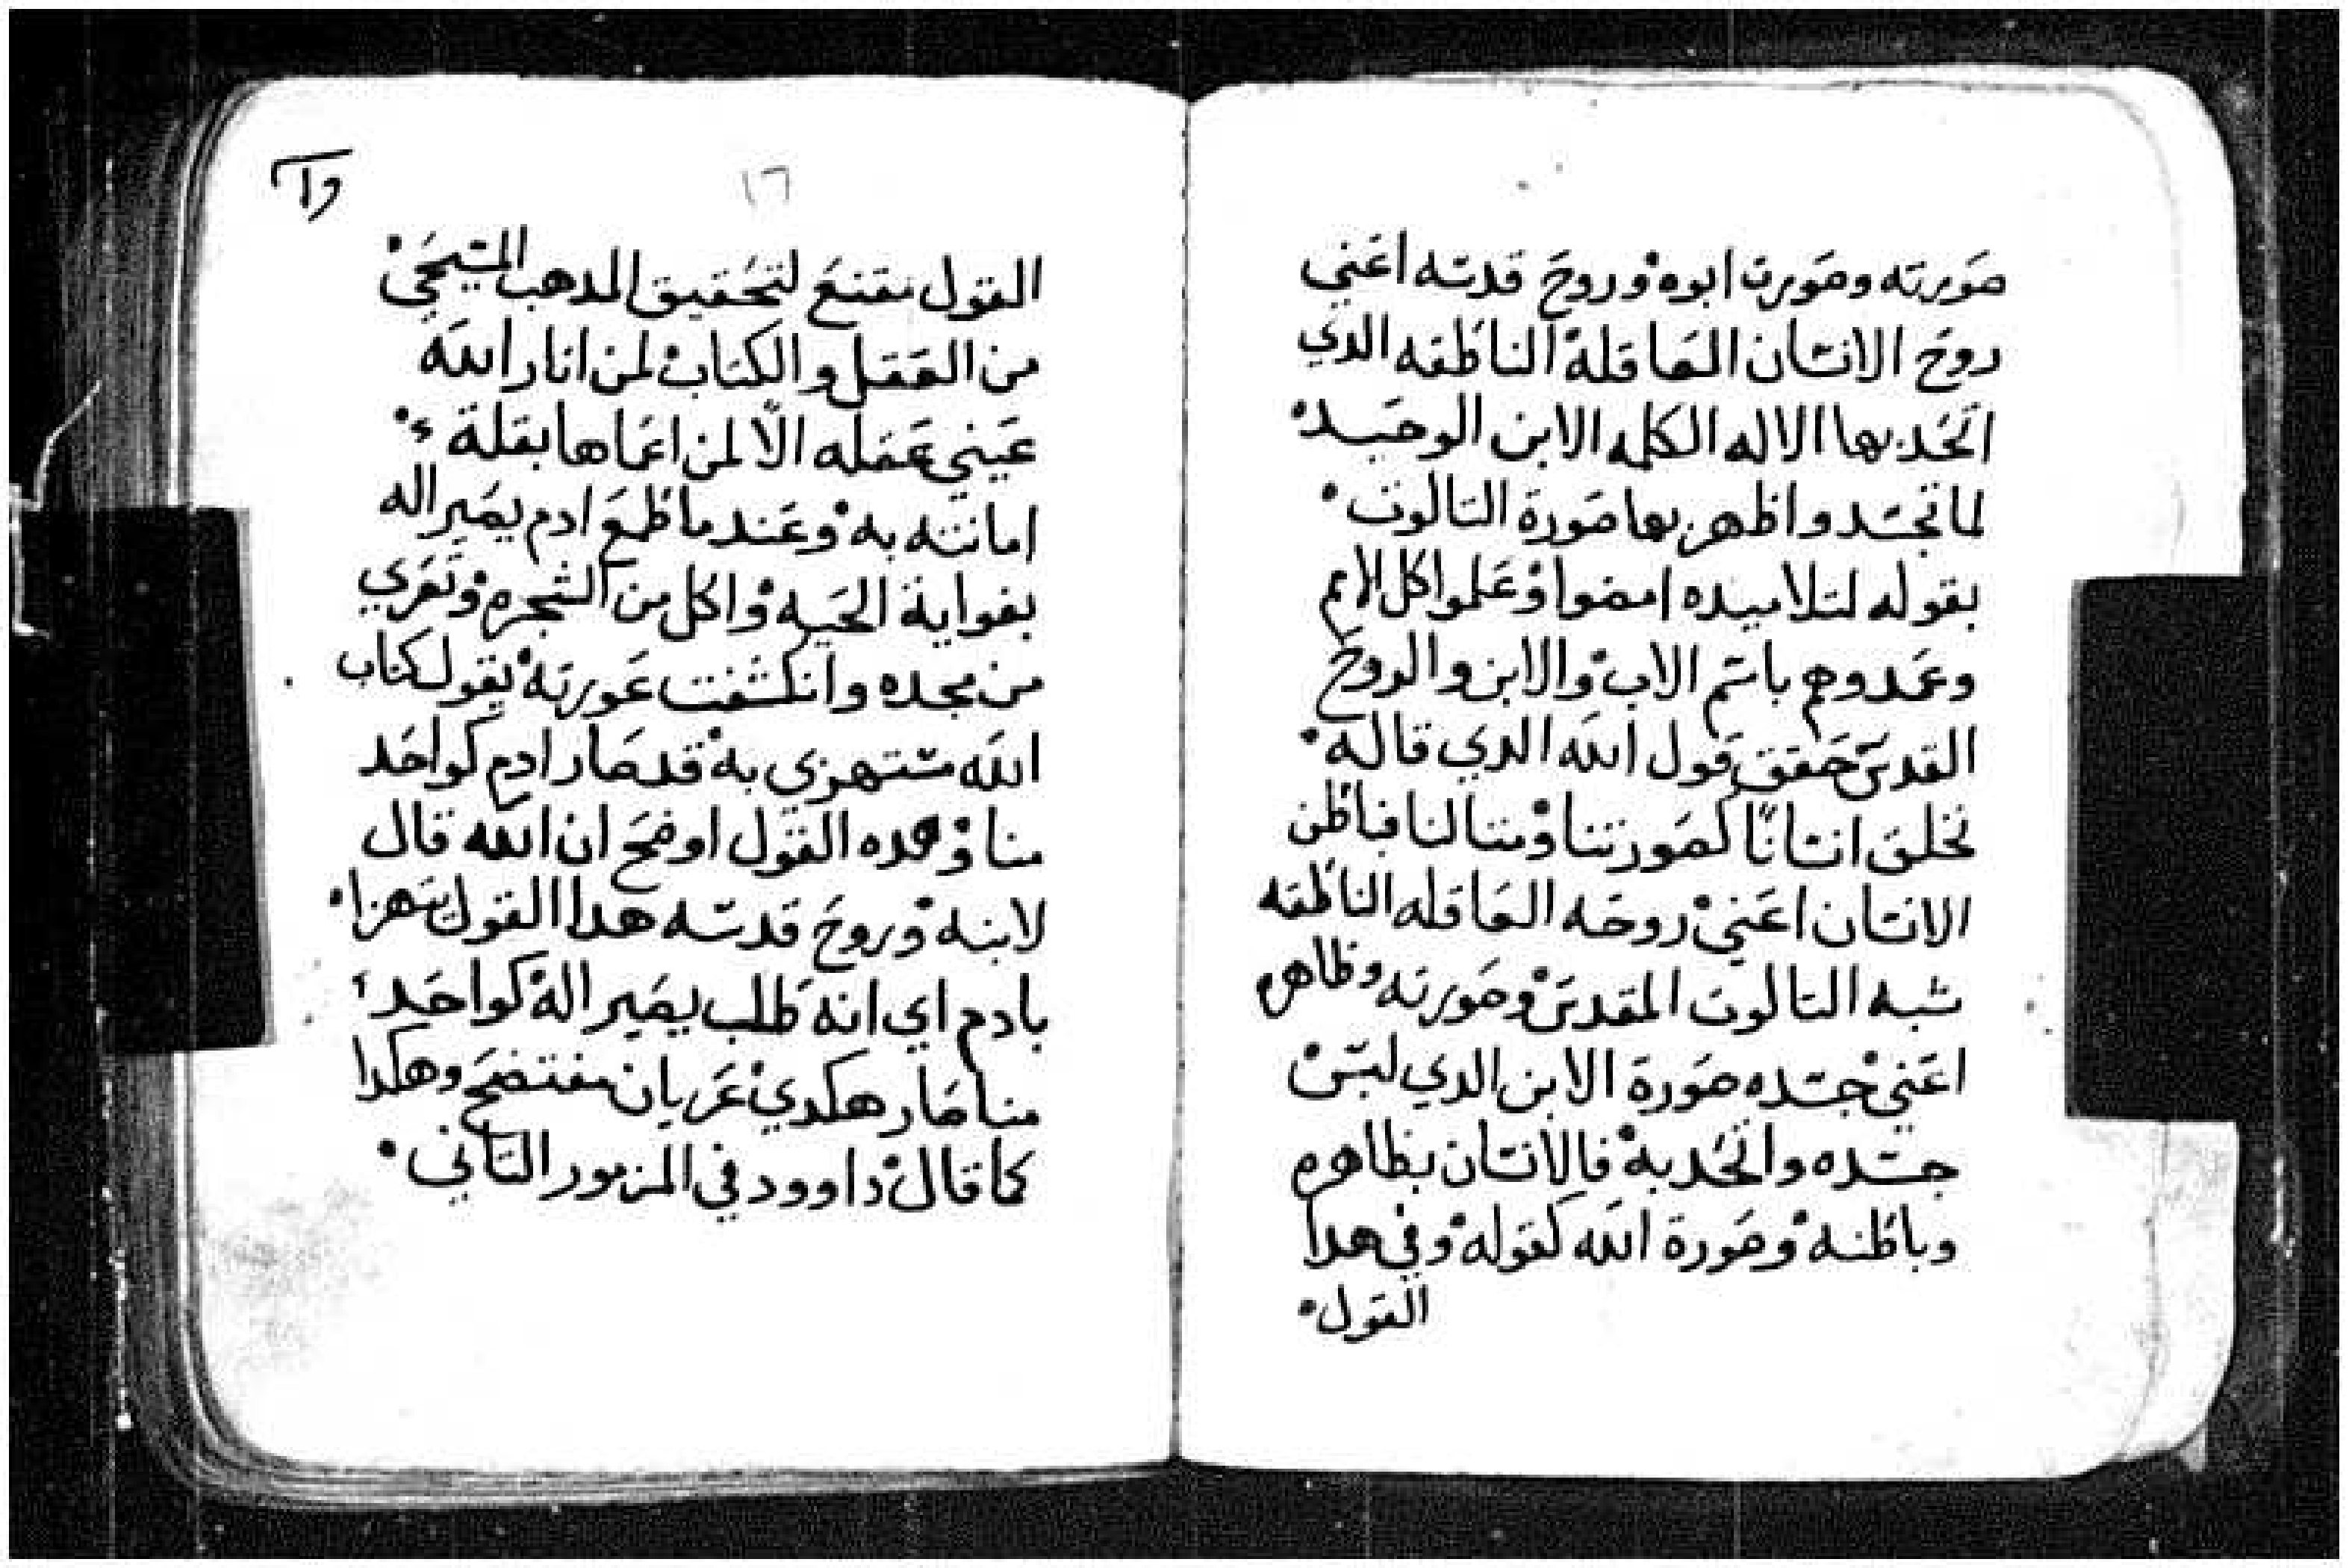 صورته وصورت ابوه وروح قدسه اعني
روح الانسان العاقلة الناطقه الدي
اتحد بها الاله الكلمه الابن الوحيد
لما تجسد واظهر بها صورة التالوت
بقوله لتلاميده امضوا وعلموا كل الامم
وعمدوهم باسم الاب والابن والروح
القدس حقق قول الله الدي قاله
نخلق انسانًا كصورتنا ومتالنا فباطن
الانسان اعني روحه العاقله الناطقه
شبه التالوت المقدس وصورته وظاهره
اعني جسده صورة الابن الدي لبس
جسده واتحد به فالانسان بظاهره
وباطنه وصورة الله كقوله وفي هدا
القول
١٦
القول مقنع لتحقيق المدهب المسيحي
من العقل والكتاب لمن انار الله
عيني عقله الّا لمن اعماها بقلة
امانته به وعند ما طمع ادم يصير اله
بغواية الحيه واكل من الشجره وتعري
من مجده وانكشفت عورته يقول كتاب
الله مستهزي به قد صار ادم كواحد
منا وهده القول اوضح ان الله قال
لابنه وروح قدسه هدا القول يتهزا
بادم اي انه طلب يصير اله كواحد
منا صار هكدي عريان مفتضح وهكدا
كما قال داوود في المزمور التاني